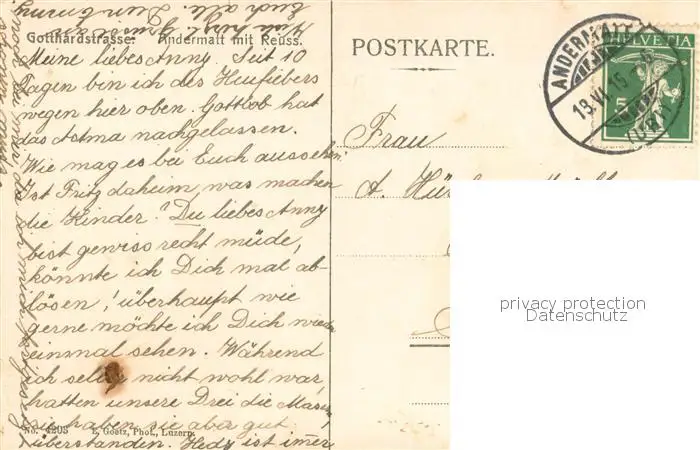 Gotthardstrasse. Andermatt mit Reuss.
Meine liebes Anny. Seit 10
Tagen bin ich des Heufiebers
wegen hier oben. Gottlob hat
das Astma nachgelassen.
Wie mag es bei Euch aussehen?
Ist Fritz daheim, was machen
die Kinder? Du liebes Anny
bist gewiss recht müde,
könnte ich Dich mal ab-
lösen! überhaupt wie
gerne möchte ich Dich wieder
einmal sehen. Während
ich selber nicht wohl war,
hatten unsere Drei die Masern,
sie haben sie aber gut
überstanden. Hedy ist immer
No. 4203 E. Goetz, Phot., Luzern.
POSTKARTE.
Frau
A.
ANDERMATT
18.VI.15
(URI)
HELVETIA
5
privacy protection
Datenschutz